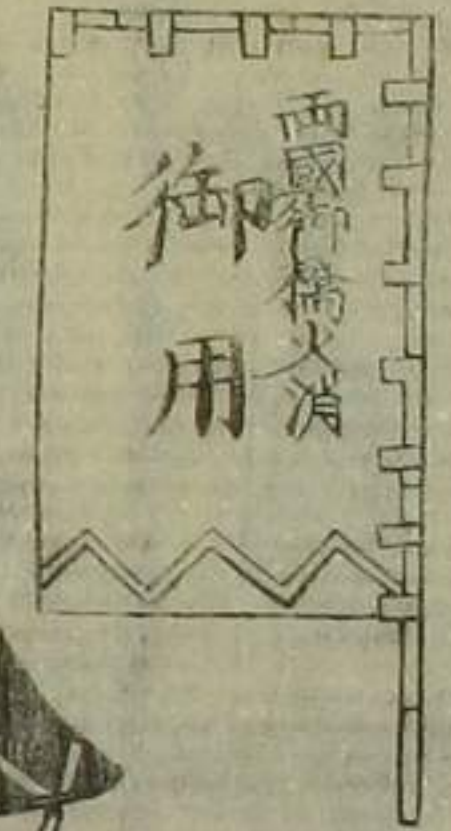 両國御橋火消
御用